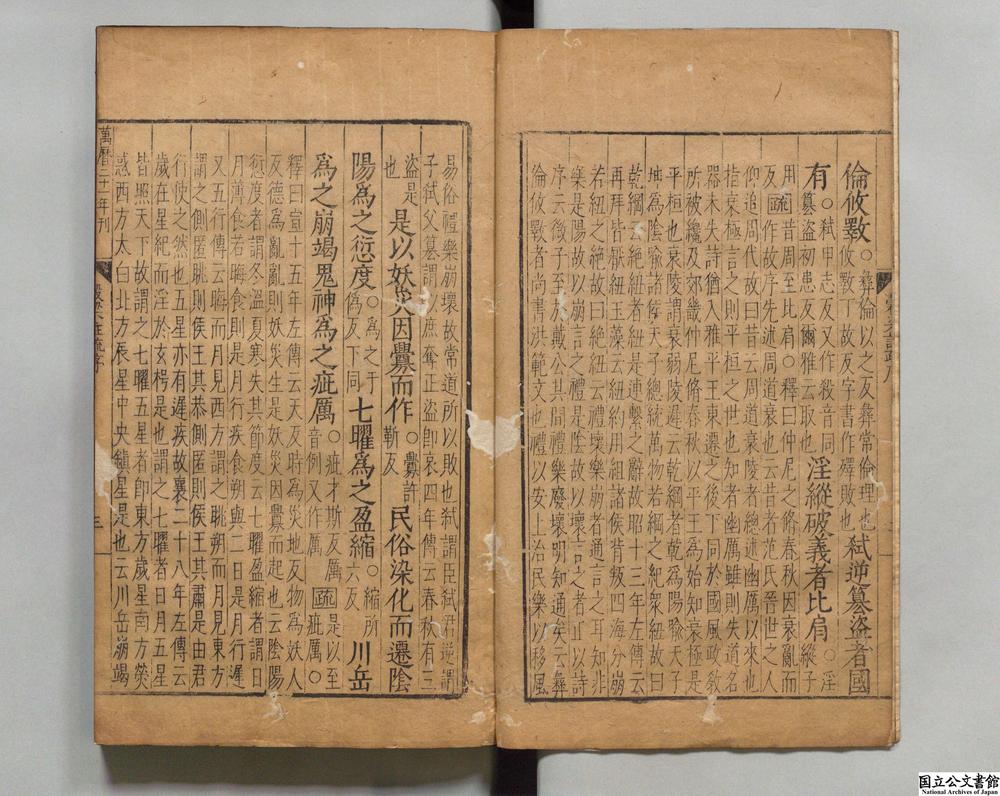 倫攸斁
。彝倫以之反彝常倫理也
攸斁丁故反字書作殬敗也
弑逆篡盜者國
有
。弑申志反又作殺音同
篡盜初患反爾雅云取也
淫縱破義者比肩
。淫
縱子
用。昔周至比肩。釋曰仲尼之脩春秋因衰亂而
反疏作故序先述周道衰也云昔者范氏晉世之人
仰追周代故曰昔云周道衰陵者總述幽厲以來也
指衰極言之則平桓之世也知者幽厲雖則失道名
器未失詩猶入雅平王東遷之後下同於國風政敎
所被纔及郊畿仲尼脩春秋以平王為始知衰極是
平桓也衰陵者謂衰弱陵遲云乾綱者乾為陽喻天子
坤為陰喻諸侯天子總統萬物若綱之紀衆紐故曰
乾綱云絕紐者紐是連繫之辭故昭十三年左傳云
再拜皆厭紐玉藻云紐約用組諸侯背叛四海分崩
若紐之絕故曰絕紐云禮壞樂崩者通言之耳知非
樂是陽故以崩言之禮是陰故以壞言之者正以詩
序云微子至于戴公其間禮樂廢壞明知通矣云彝
倫攸斁者尚書洪範文也禮以安上治民樂以移風
易俗禮樂崩壞故常道所以敗也弑謂臣弑君逆謂
子弑父篡謂以庶奪正盜即哀四年傳云春秋有三
盜是
也
是以妖災因釁而作
。釁許
靳反
民俗染化而遷陰
陽為之愆度
。為之于
偽反下同
七曜為之盈縮
。縮所
六反
川岳
為之崩竭鬼神為之疵厲
。疵才斯反厲
音例又作厲
疏
是以至
疵厲。
釋曰宣十五年左傳云天反時為災地反物為妖人
反德為亂亂則妖災生是妖災因釁而起也云陰陽
愆度者謂冬溫夏寒失其節度云七曜盈縮者謂日
月薄食若晦食則是月行疾食朔與二日是月行遲
又五行傳云晦而月見西方謂之朓朔而月見東方
謂之側匿朓則侯王其恭側匿則侯王其肅是由君
行使之然也五星亦有遲疾故襄二十八年左傳云
歲在星紀而淫於玄枵是也謂之七曜者日月五星
皆照天下故謂之七曜五星者即東方歲星南方熒
惑西方太白北方辰星中央鎮星是也云川岳崩竭
萬曆二十一年刊
三
国立公文書館
National Archives of Japan